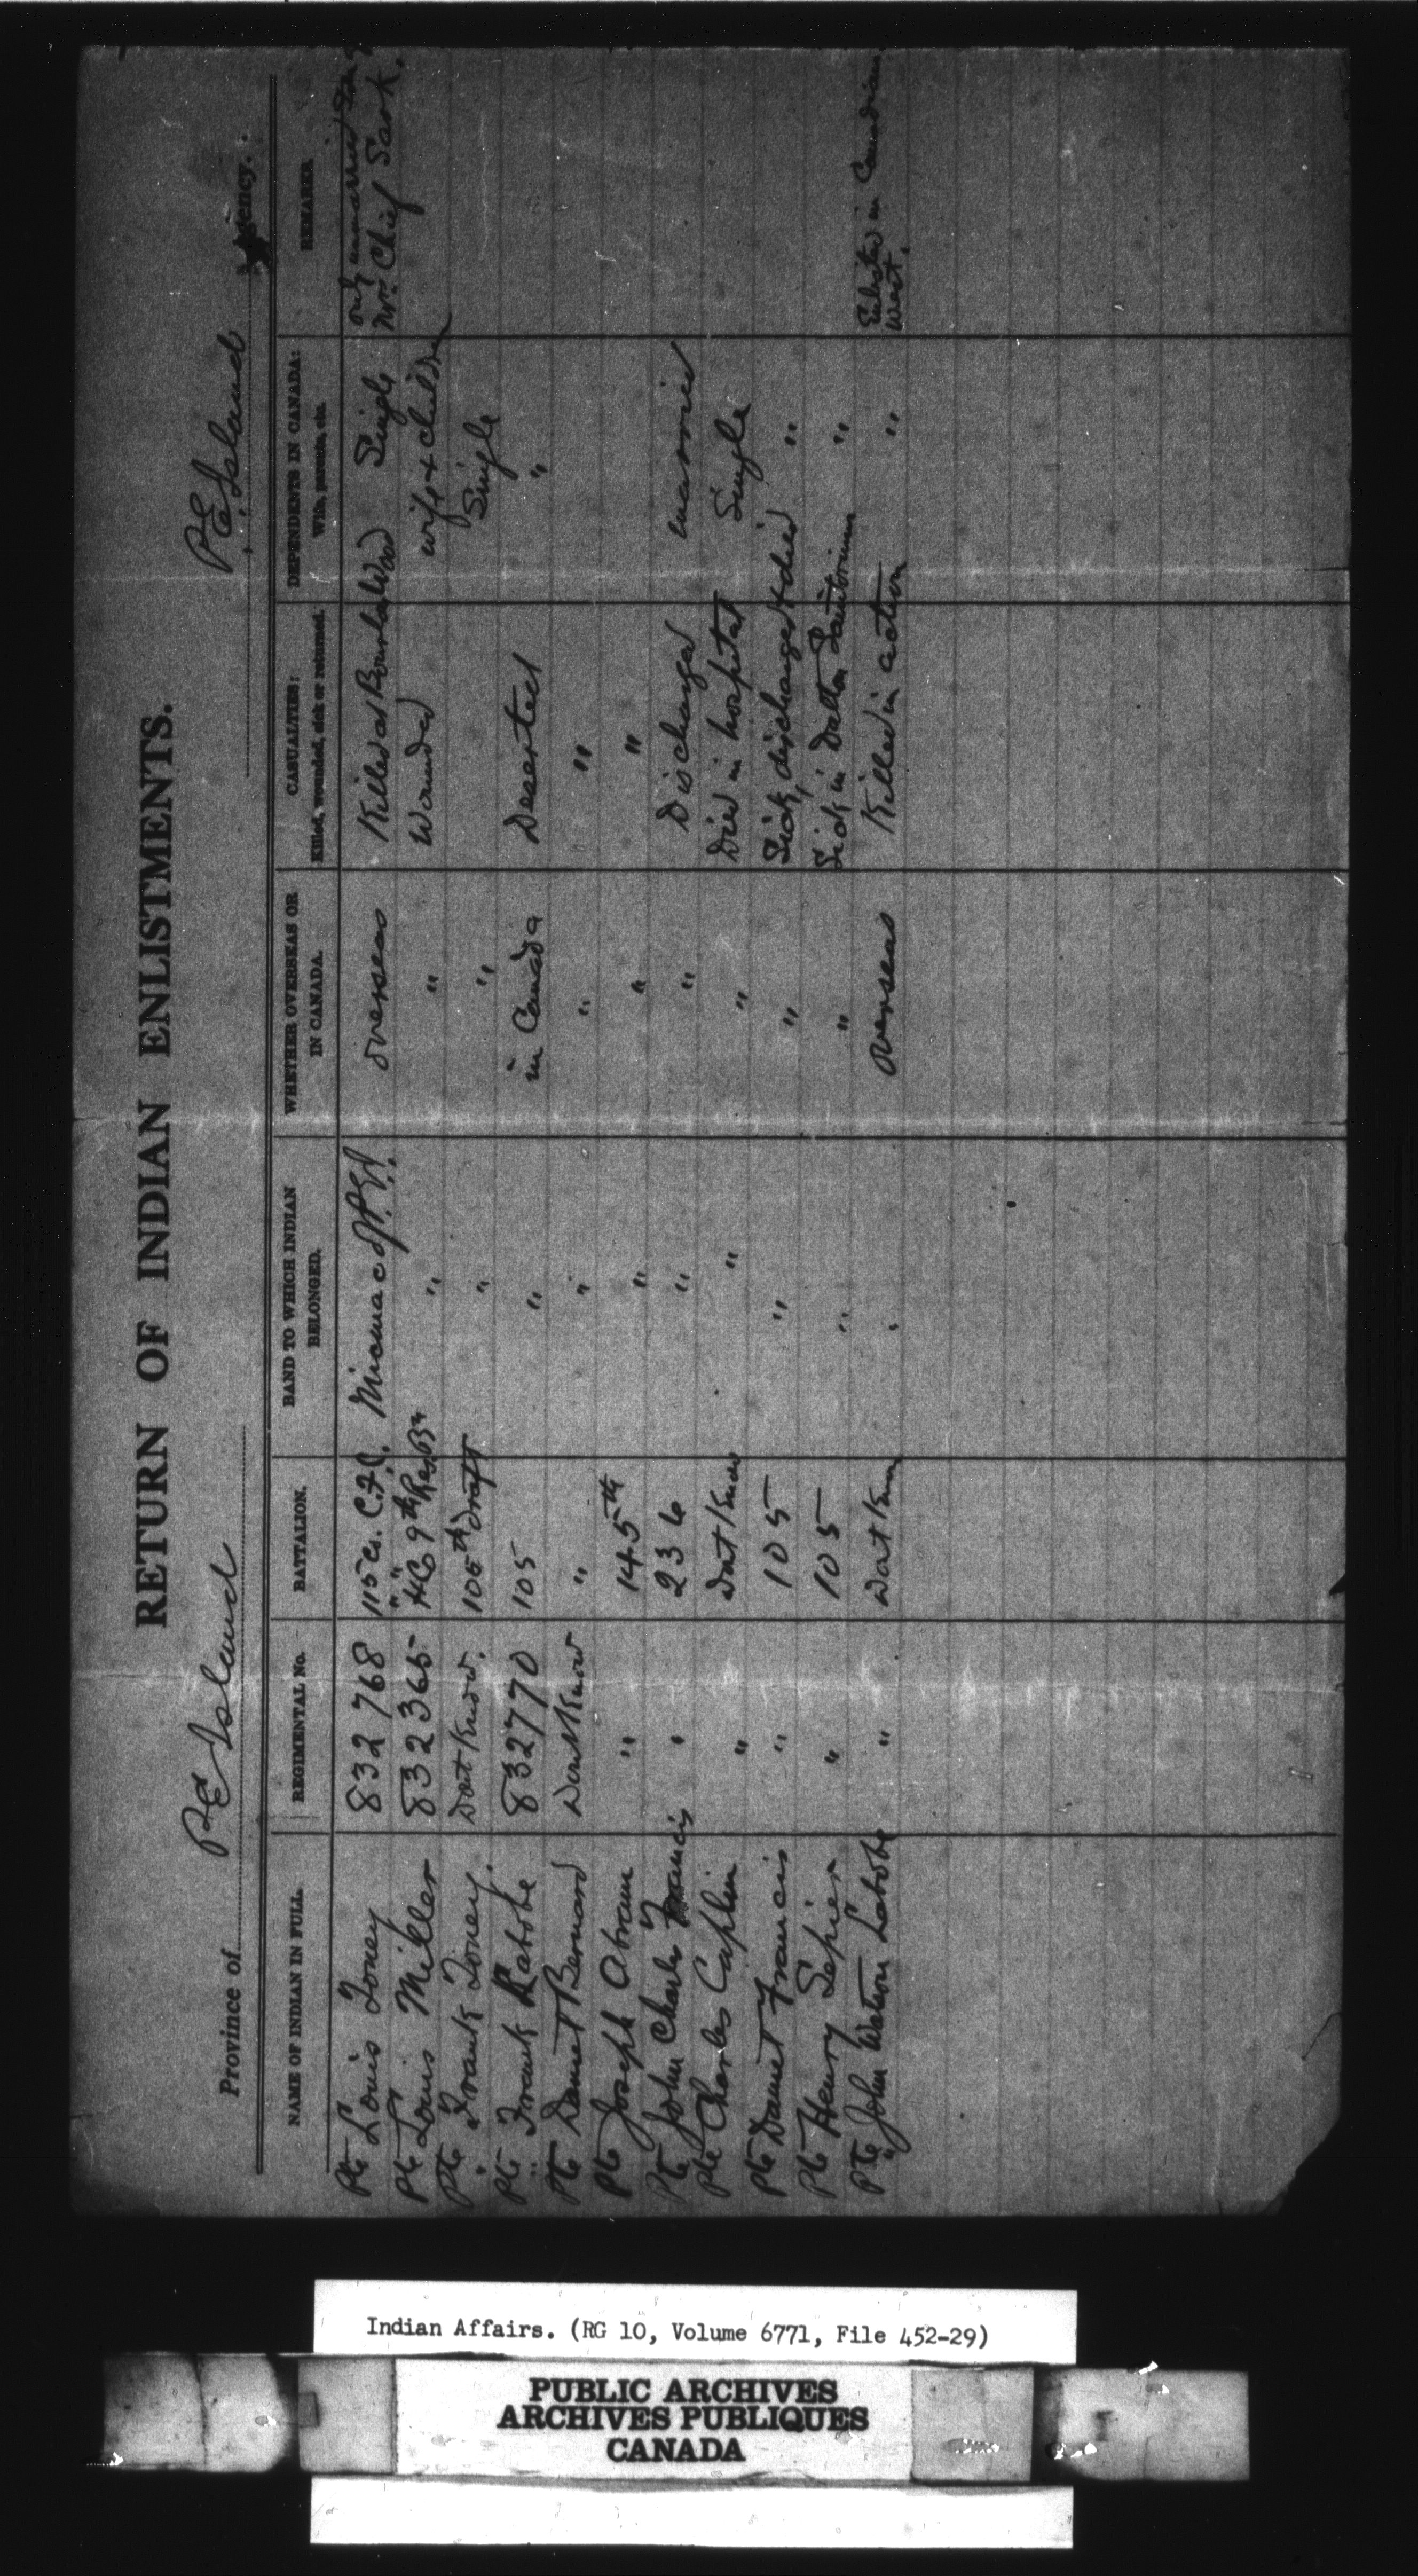 RETURN OF INDIAN ENLISTMENTS.
Province of P E Island P.E. Island Agency.
NAME OF INDIAN IN FULL. REGIMENTAL No. BATTALION. BAND TO WHICH INDIAN BELONGED. WHETHER OVERSEAS OR IN CANADA. CASUALTIES: Killed, wounded, sick or returned. DEPENDENTS IN CANADA: Wife, parents, etc. REMARKS.
Pte Louis Toney 832768 Micmac of P.E.I. overseas Killed at Bourlon Wood Single only unmarried son of Mrs. Chief Sark.
Pte Louis Miller 832365 9th Res Bn " " Wounded wife & children
Pte Frank Toney Dont Know. 105th draft " " Single
Pte " Frank Labobe 832770 105 " in Canada Deserted "
Pte Daniel Bernard Dont Know " " " "
Pte Joseph Abram " 145th " " "
Pte John Charles Francis " 236 " " Discharged married
Pte Charles Caplin " Dont Know " " Died in hospital Single
Pte Daniel Francis " 105 " " Sick, discharged & died "
Pte Henry " 105 " " Sick in Dalton Sanitorium "
Pte " John Watson Labobe " Dont Know " overseas Killed in action " Enlisted in Canadian West.
Indian Affairs. (RG 10, Volume 6771, File 452-29)
PUBLIC ARCHIVES
ARCHIVES PUBLIQUES
CANADA